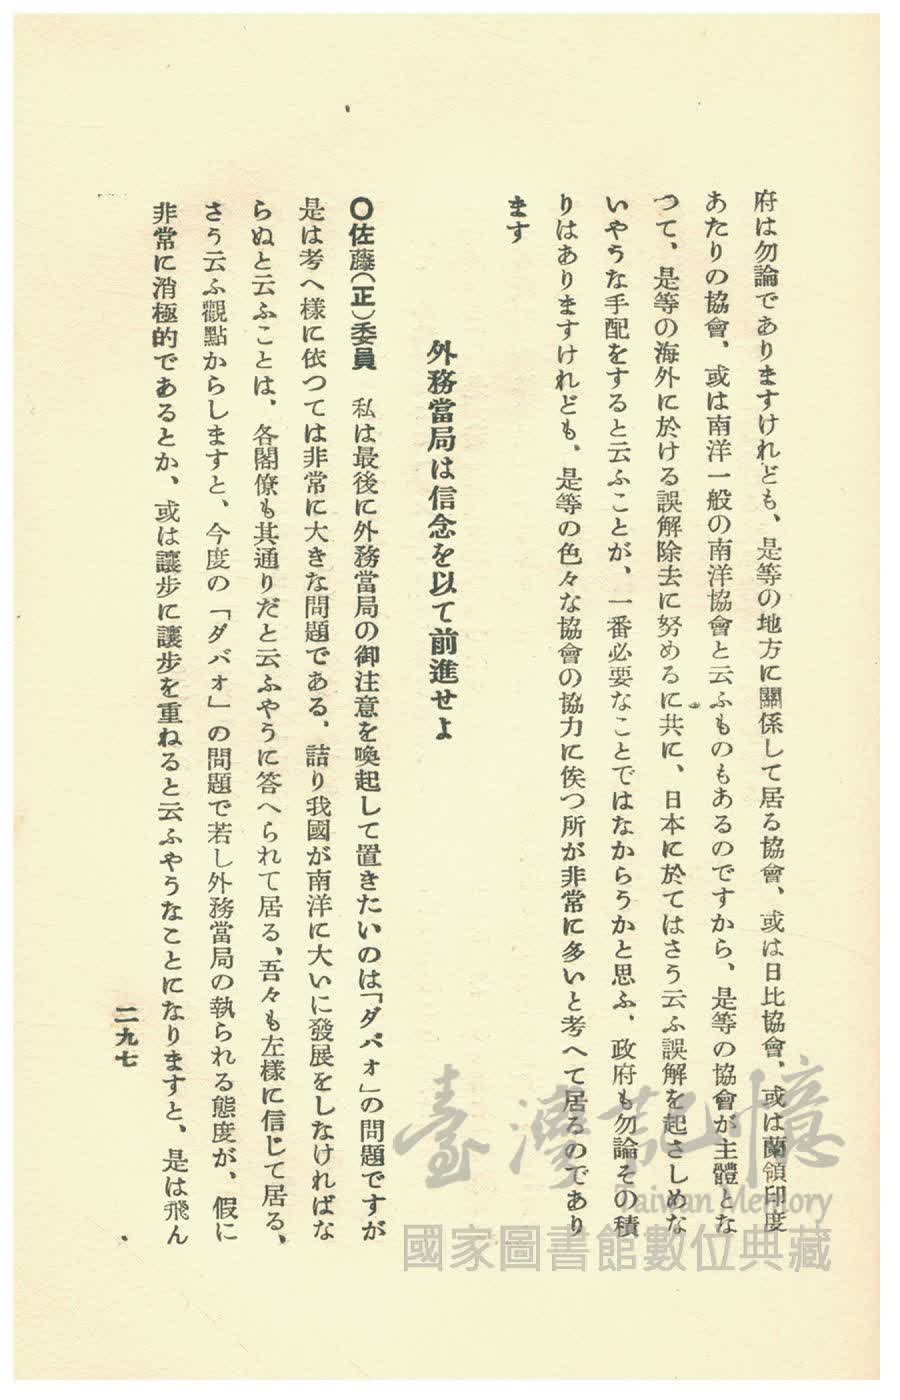 府は勿論でありますけれども、是等の地方に關係して居る協會、或は日比協會、或は蘭領印度
あたりの協會、或は南洋一般の南洋協會と云ふものもあるのですから、是等の協會が主體とな
つて、是等の海外に於ける誤解除去に努めるに共に、日本に於てはさう云ふ誤解を起さしめな
いやうな手配をすると云ふことが、一番必要なことではなからうかと思ふ、政府も勿論その積
りはありますけれども、是等の色々な協會の協力に俟つ所が非常に多いと考へて居るのであり
ます
外務當局は信念を以て前進せよ
〇佐藤(正)委員　私は最後に外務當局の御注意を喚起して置きたいのは「ダバォ」の問題ですが
是は考へ樣に依つては非常に大きな問題である、詰り我國が南洋に大いに發展をしなければな
らぬと云ふことは、各閣僚も其通りだと云ふやうに答へられて居る、吾々も左樣に信じて居る、
さう云ふ觀點からしますと、今度の「ダバォ」の問題で若し外務當局の執られる態度が、假に
非常に消極的であるとか、或は讓步に讓步を重ねると云ふやうなことになりますと、是は飛ん
二九七
臺灣記憶
Taiwan Memory
國家圖書館數位典藏